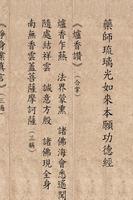 藥師琉璃光如來本願功德經
《爐香讚》（合掌）
爐香乍爇　法界蒙熏　諸佛海會悉遙聞
隨處結祥雲　誠意方殷　諸佛現全身
南無香雲蓋菩薩摩訶薩（三稱）
《淨身業真言》（三遍）